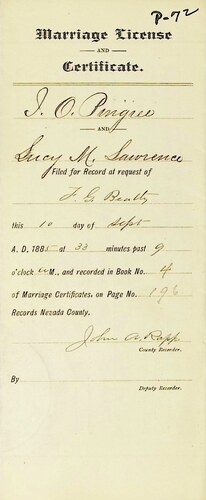 P-72
Marriage License
AND
Certificate.
I. O. Pingree
AND
Lucy M. Lawrence
Filed for Record at request of
F. G. Beatty
this 10 day of Sept
A. D. 1885 at 33 minutes past 9
o'clock a M., and recorded in Book No. 4
of Marriage Certificates, on Page No. 196
Records Nevada County.
John A. Rapp
County Recorder.
By
Deputy Recorder.